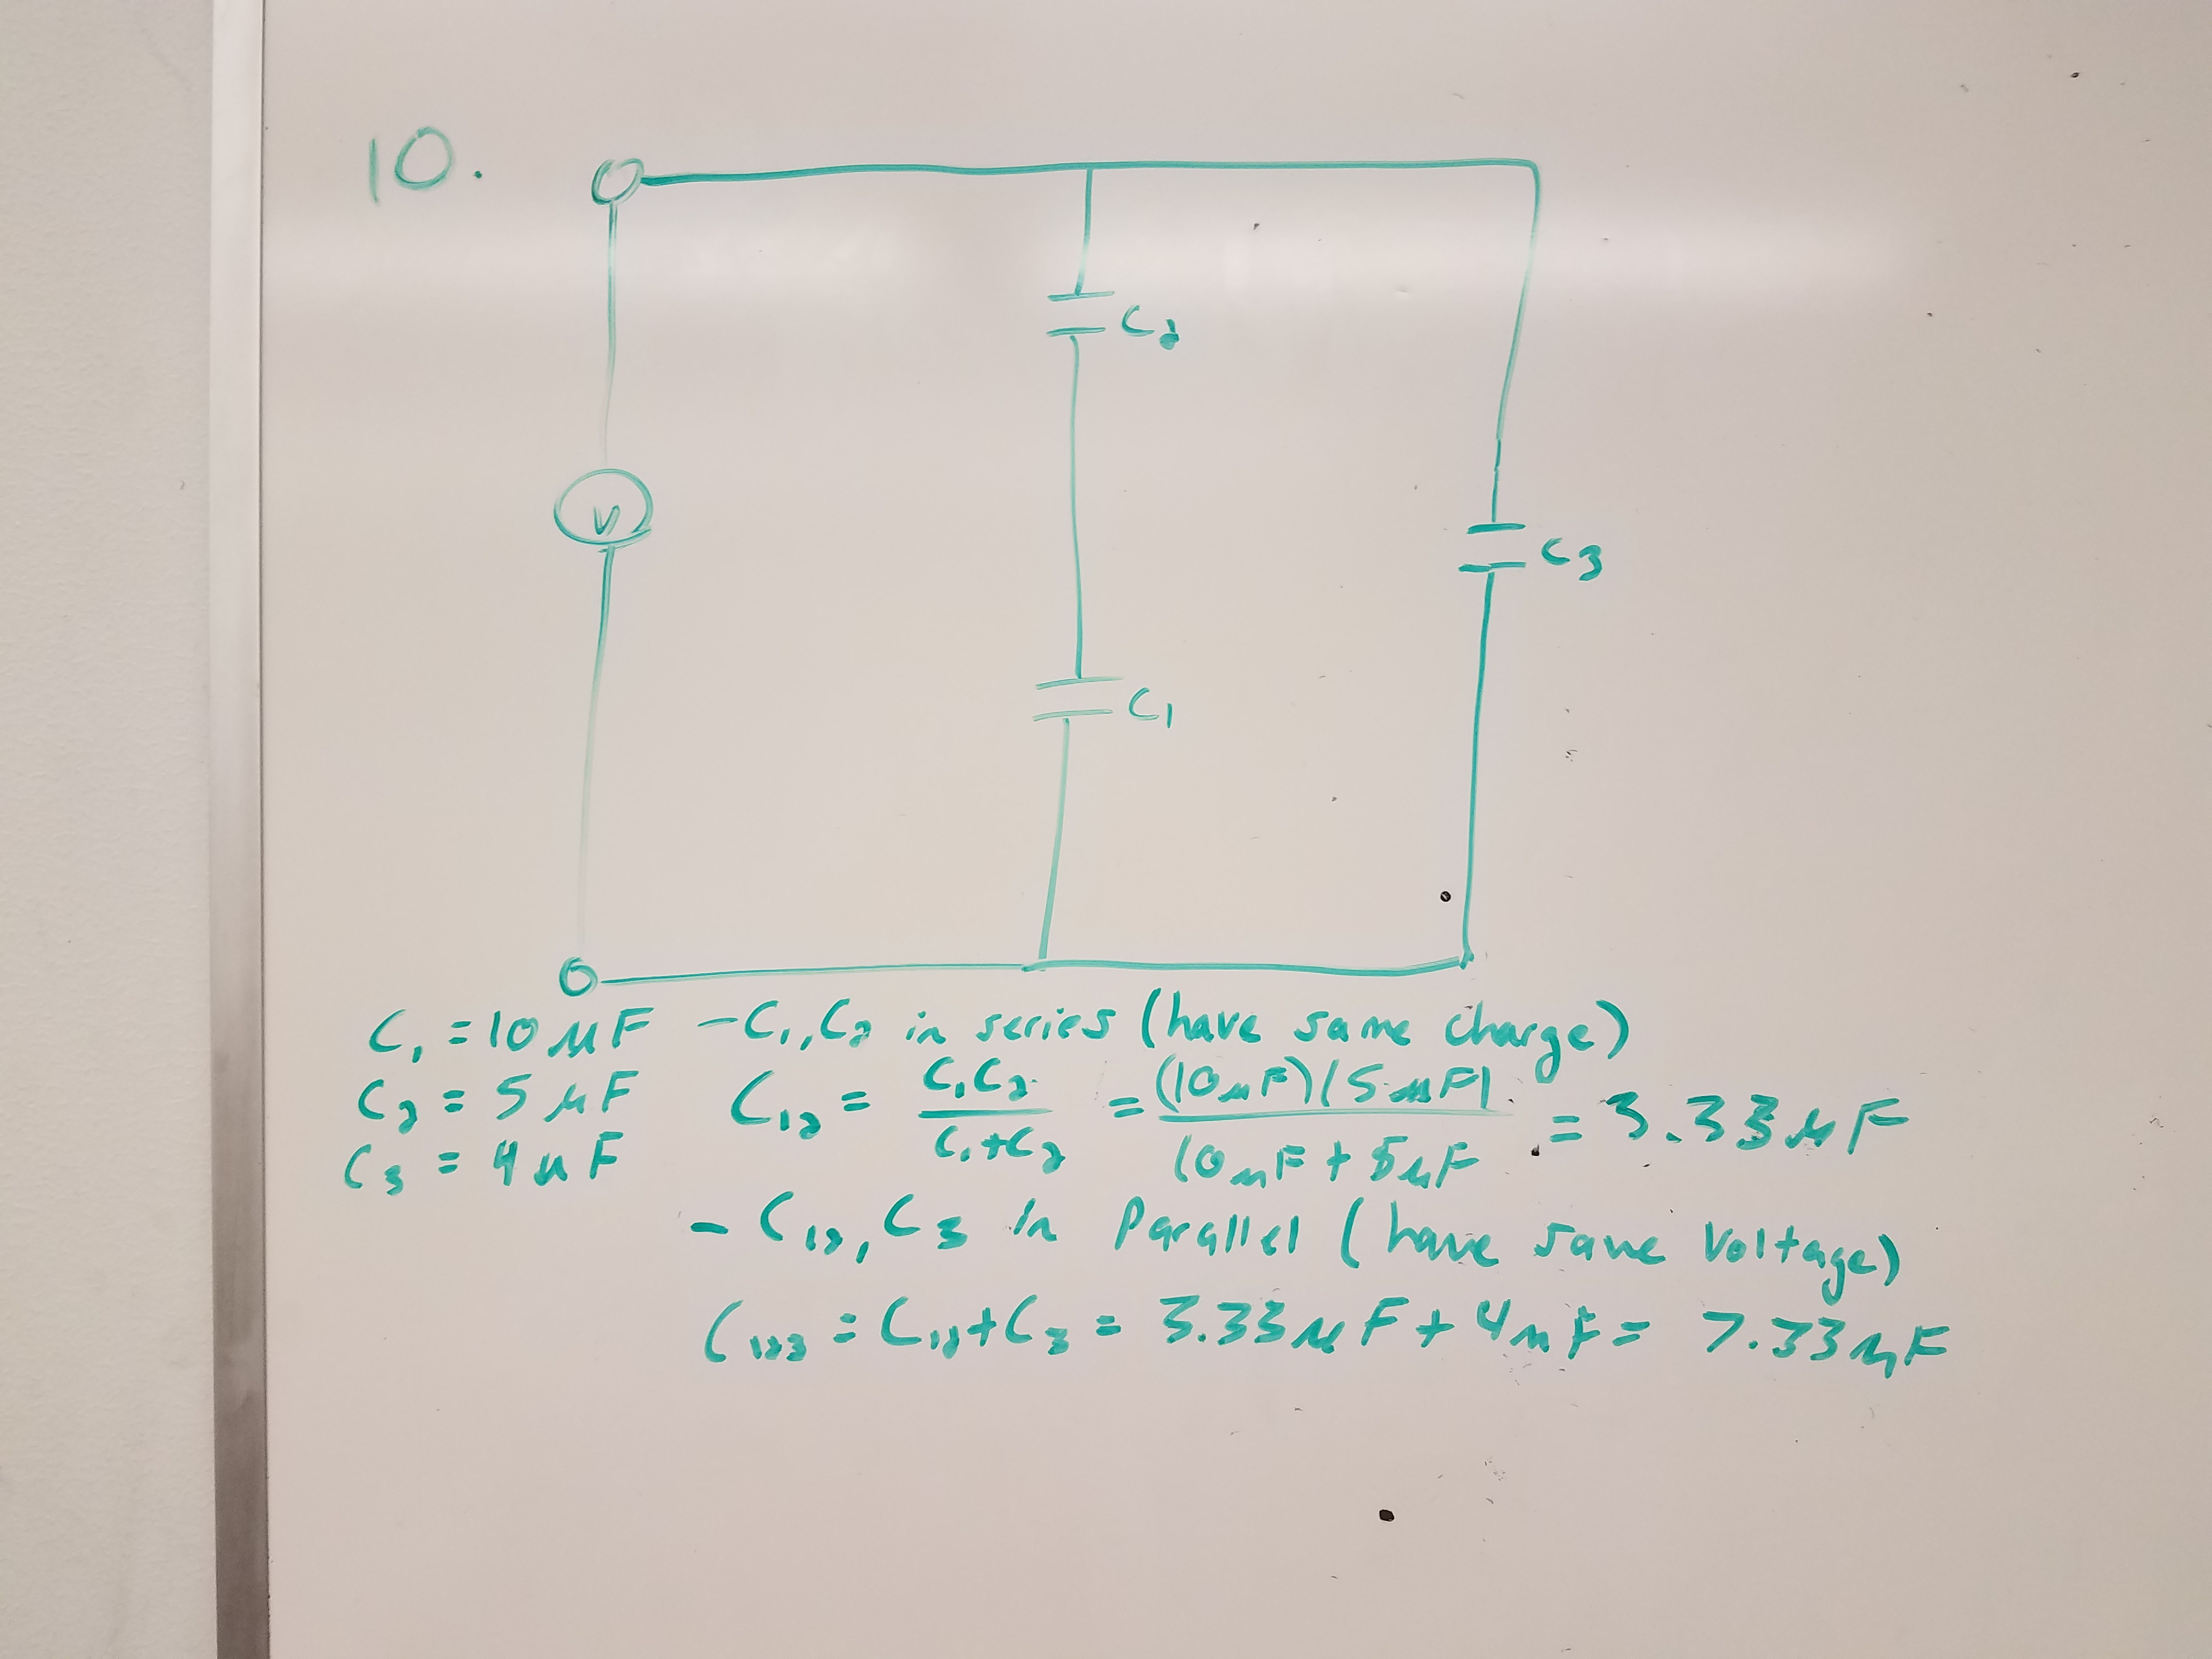 10.
C₂
V
C₃
C₁
C₁ = 10 μF - C₁, C₂ in series (have same charge)
C₂ = 5 μF C₁₂ = C₁C₂ / C₁+C₂ = (10μF)(5μF) / 10μF + 5μF = 3.33μF
C₃ = 4μF
- C₁₂, C₃ in Parallel (have same Voltage)
C₁₂₃ = C₁₂+C₃ = 3.33μF + 4μF = 7.33μF